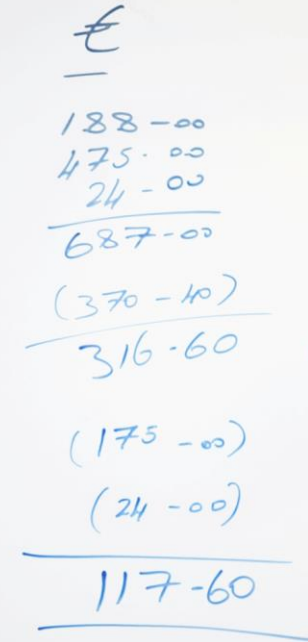 €
188-00
475.00
24-00
687-00
(370-40)
316.60
(175-00)
(24-00)
117-60